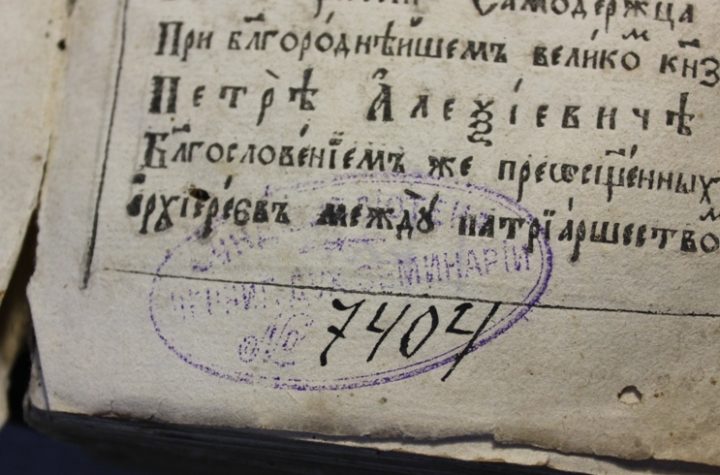 Самодержца
При бл҃горо́днѣйшемъ вели́комъ кн҃з
Пе́трѣ А҆леѯі́евичѣ
Бл҃гослове́нїемъ же преѡсщ҃е́нныхъ
а҆рхїере́євъ междꙋ̀ патрїа́ршеством
СЕМИНАРІИ
№ 7404